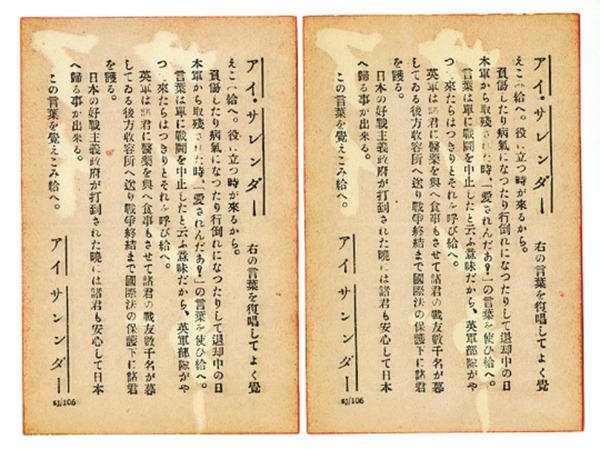 アイ・サレンダー 右の言葉を復唱してよく覺
えこみ給へ。役に立つ時が來るから。
負傷したり病氣になつたり行倒れになつたりして退却中の日
本軍から取殘された時、「愛されんだあ!」の言葉を使ひ給へ。
言葉は單に戰鬪を中止したと云ふ意味だから、英軍部隊がや
つ 來たらはつきりとそれを呼び給へ。
英軍は諸君に醫藥を與へ食事もさせて諸君の戰友數千名が暮
してゐる後方收容所へ送り戰爭終結まで國際法の保護下に諸君
を護る。
日本の好戰主義政府が打倒された曉には諸君も安心して日本
へ歸る事が出來る。
この言葉を覺えこみ給へ。
アイ サレンダー
SJ/106
アイ・サレンダー 右の言葉を復唱してよく覺
えこみ給へ。役に立つ時が來るから。
負傷したり病氣になつたり行倒れになつたりして退却中の日
本軍から取殘された時、「愛されんだあ!」の言葉を使ひ給へ。
言葉は單に戰鬪を中止したと云ふ意味だから、英軍部隊がや
つ 來たらはつきりとそれを呼び給へ。
英軍は諸君に醫藥を與へ食事もさせて諸君の戰友數千名が暮
してゐる後方收容所へ送り戰爭終結まで國際法の保護下に諸君
を護る。
日本の好戰主義政府が打倒された曉には諸君も安心して日本
へ歸る事が出來る。
この言葉を覺えこみ給へ。
アイ サレンダー
SJ/106